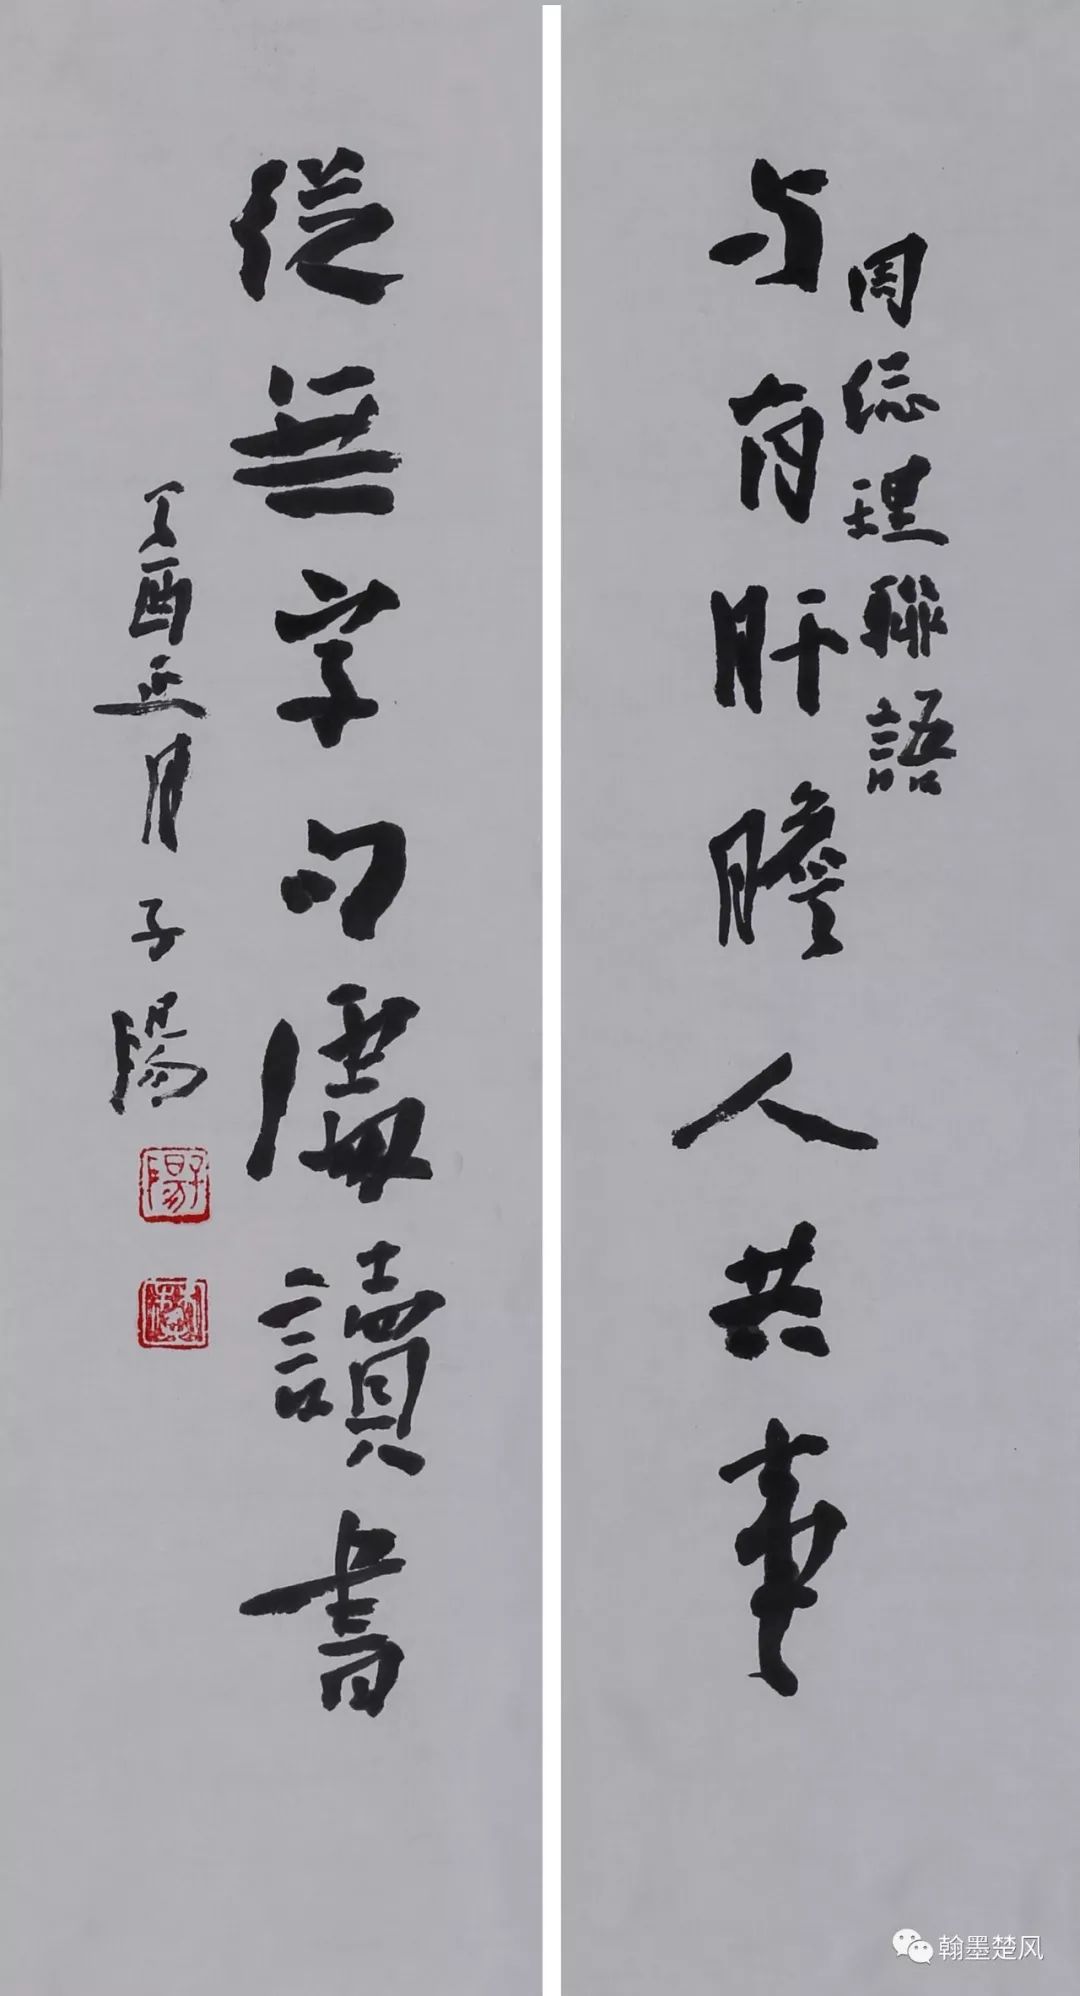 与有肝膽人共事
周總理聯語
從無字句處讀書
丁酉正月子陽
子陽
翰墨楚风